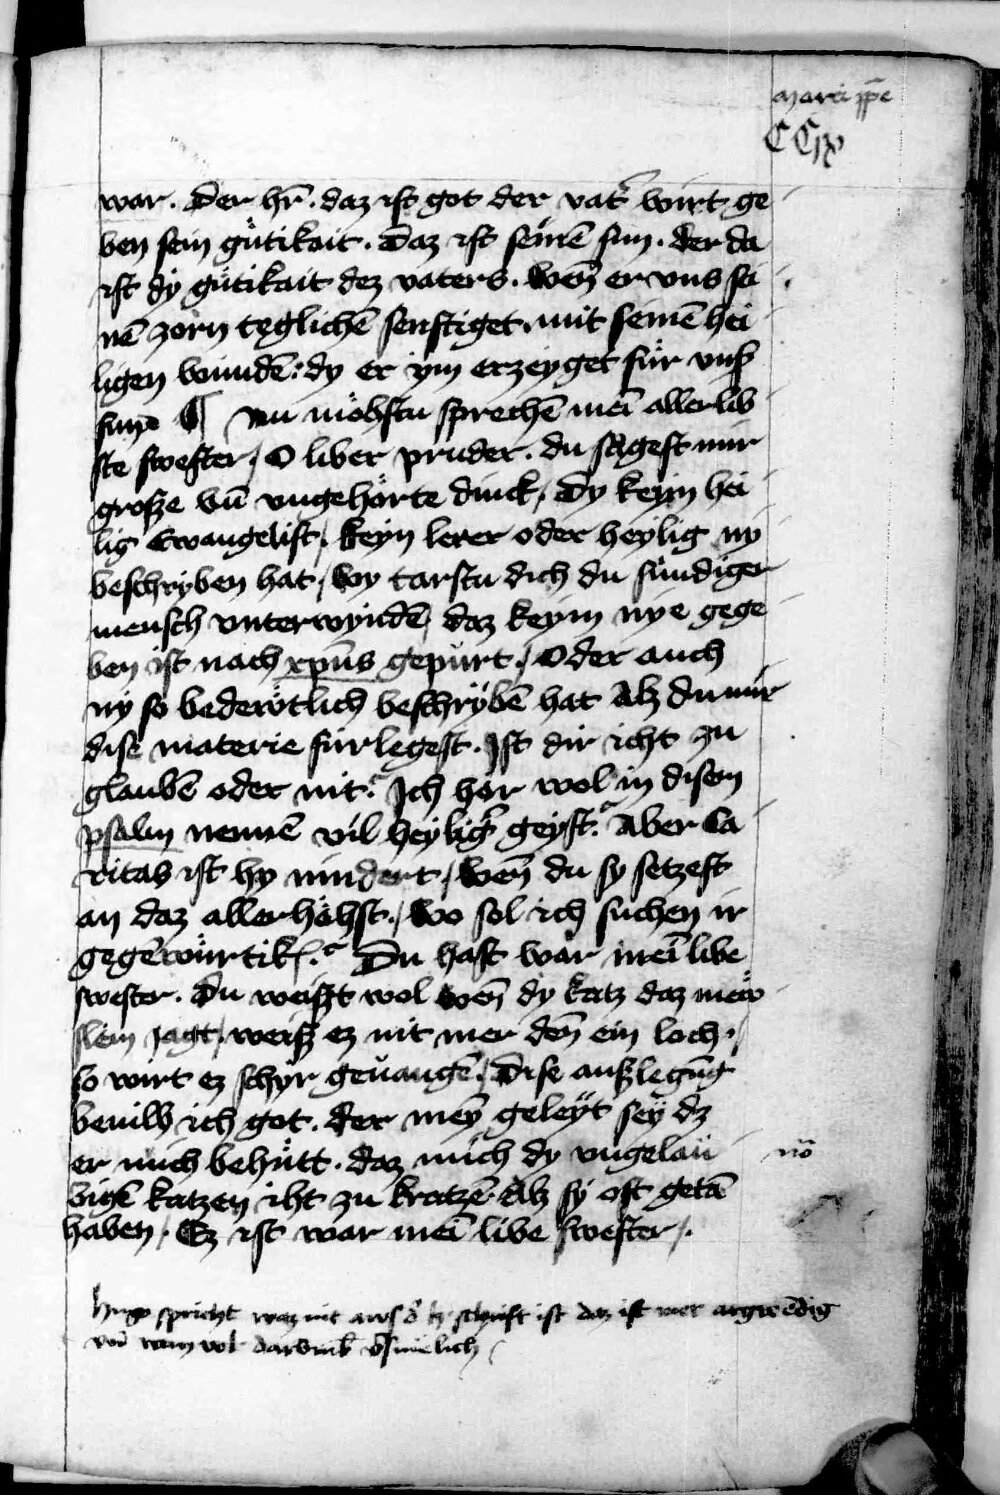 CCix
war. Der hr̄. daz ist got der vat͛ wirt ge
ben sein gu̎tikait. Daz ist seinē sun. der da
ist dy gu̎tikait dez vaters. Wen̄ er vns sei
nē zorn teglichē senftiget. mit seinē hei
ligen wundē: dy er ym erzeyget fu̎r vnß
sun̄d ¶ Nu mo̎hstu sprechē mei̅ allerlib
ste swester / O liber pruder. du sagest mir
große vn̄ vngeho̎rte dinck / Dy keyn hei
lig Ewangelist / keyn lerer oder heylig ny
beschryben hat / Wy tarstu dich du su̎ndiger
mensch vnterwyndē / daz keym nye gege
ben ist nach xp̄us gepurt / Oder auch
ny so bedewtlich beschrybē hat Alz du mir
dise materie fu̎rlegest. Ist dir icht zu
glaubē oder nit? Ich ho̎r wol in disem
psalm nennē vil heylig͛ geyst? Aber Ca
ritas ist hy nindert / Wen̄ du sy setzest
an daz allerho̎hst / Wo sol ich suchen ir
gege̅wu̎rtik? Du hast war mei̅ libe
swester. Du weißt wol wen̄ dy katz daz mew
slein jagt / weiß ez nit mer den̄ ein loch /
so wirt ez schyr geuangē / Dise außlegūg
beuilh ich got. der mey̅ geleyt sey dz
er mich behu̎tt. daz mich dy vngelau
bigē katzen iht zu kratzē Alz sy oft getā
haben / Ez ist war mei̅ libe swester /.
Hugo spricht waz nit aws d͛ h schrift ist daz ist